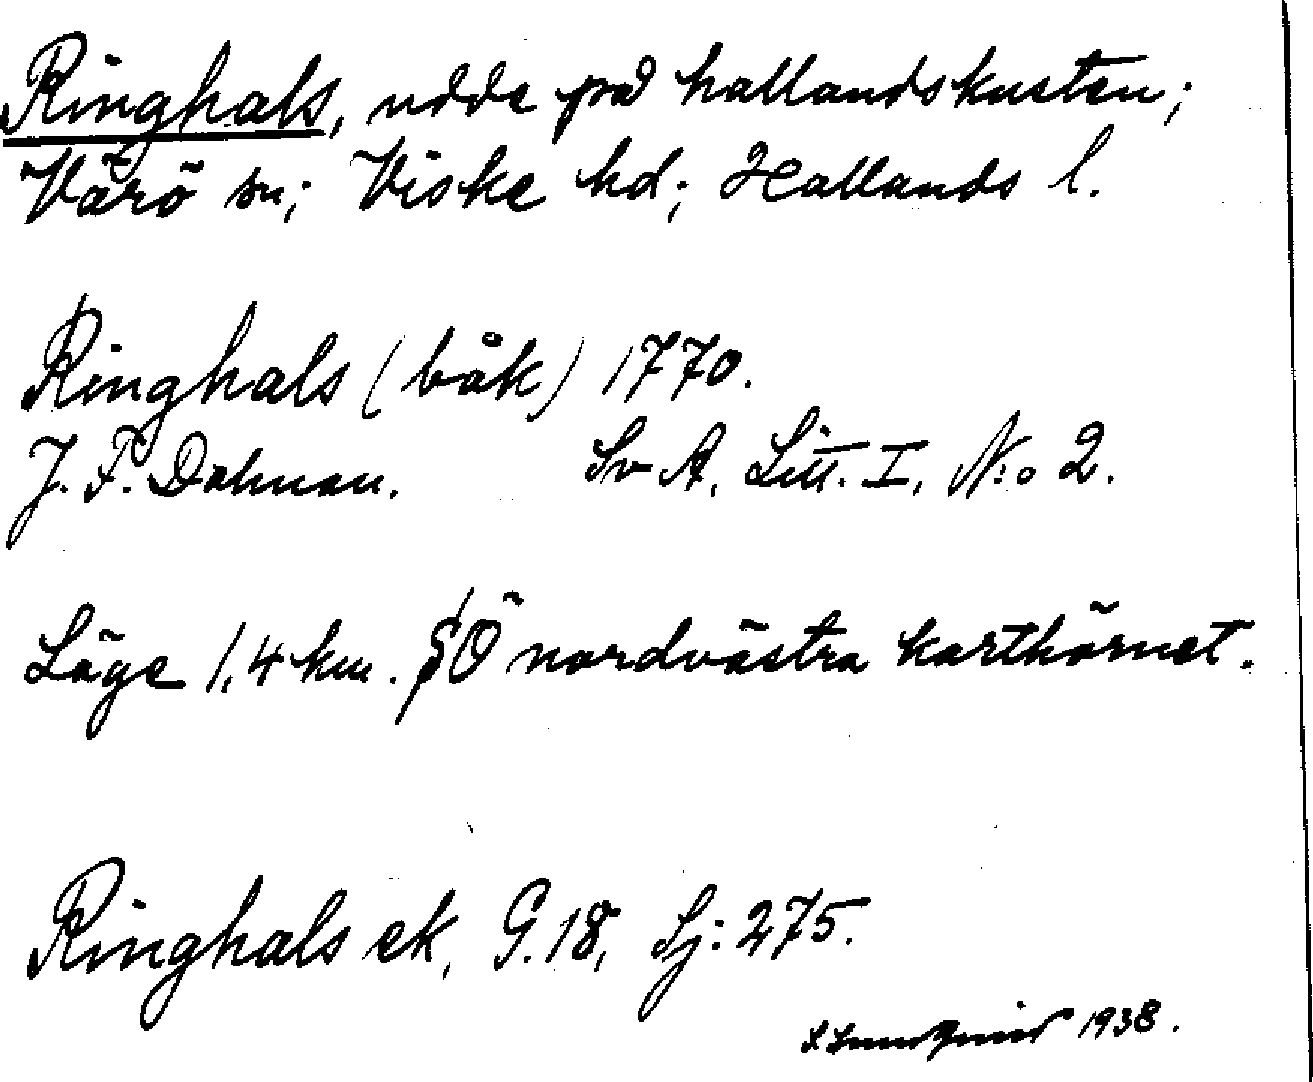 Ringhals, udde på hallandskusten;
Värö sn; Viske hd; Hallands l.
Ringhals (båk) 1770.
J. F. Dahman. Sv A, Litt. I, N:o 2.
Läge 1,4 km. SÖ nordvästra karthörnet.
Ringhals ek, G.18, Sj: 275.
S Lundquist 1938.